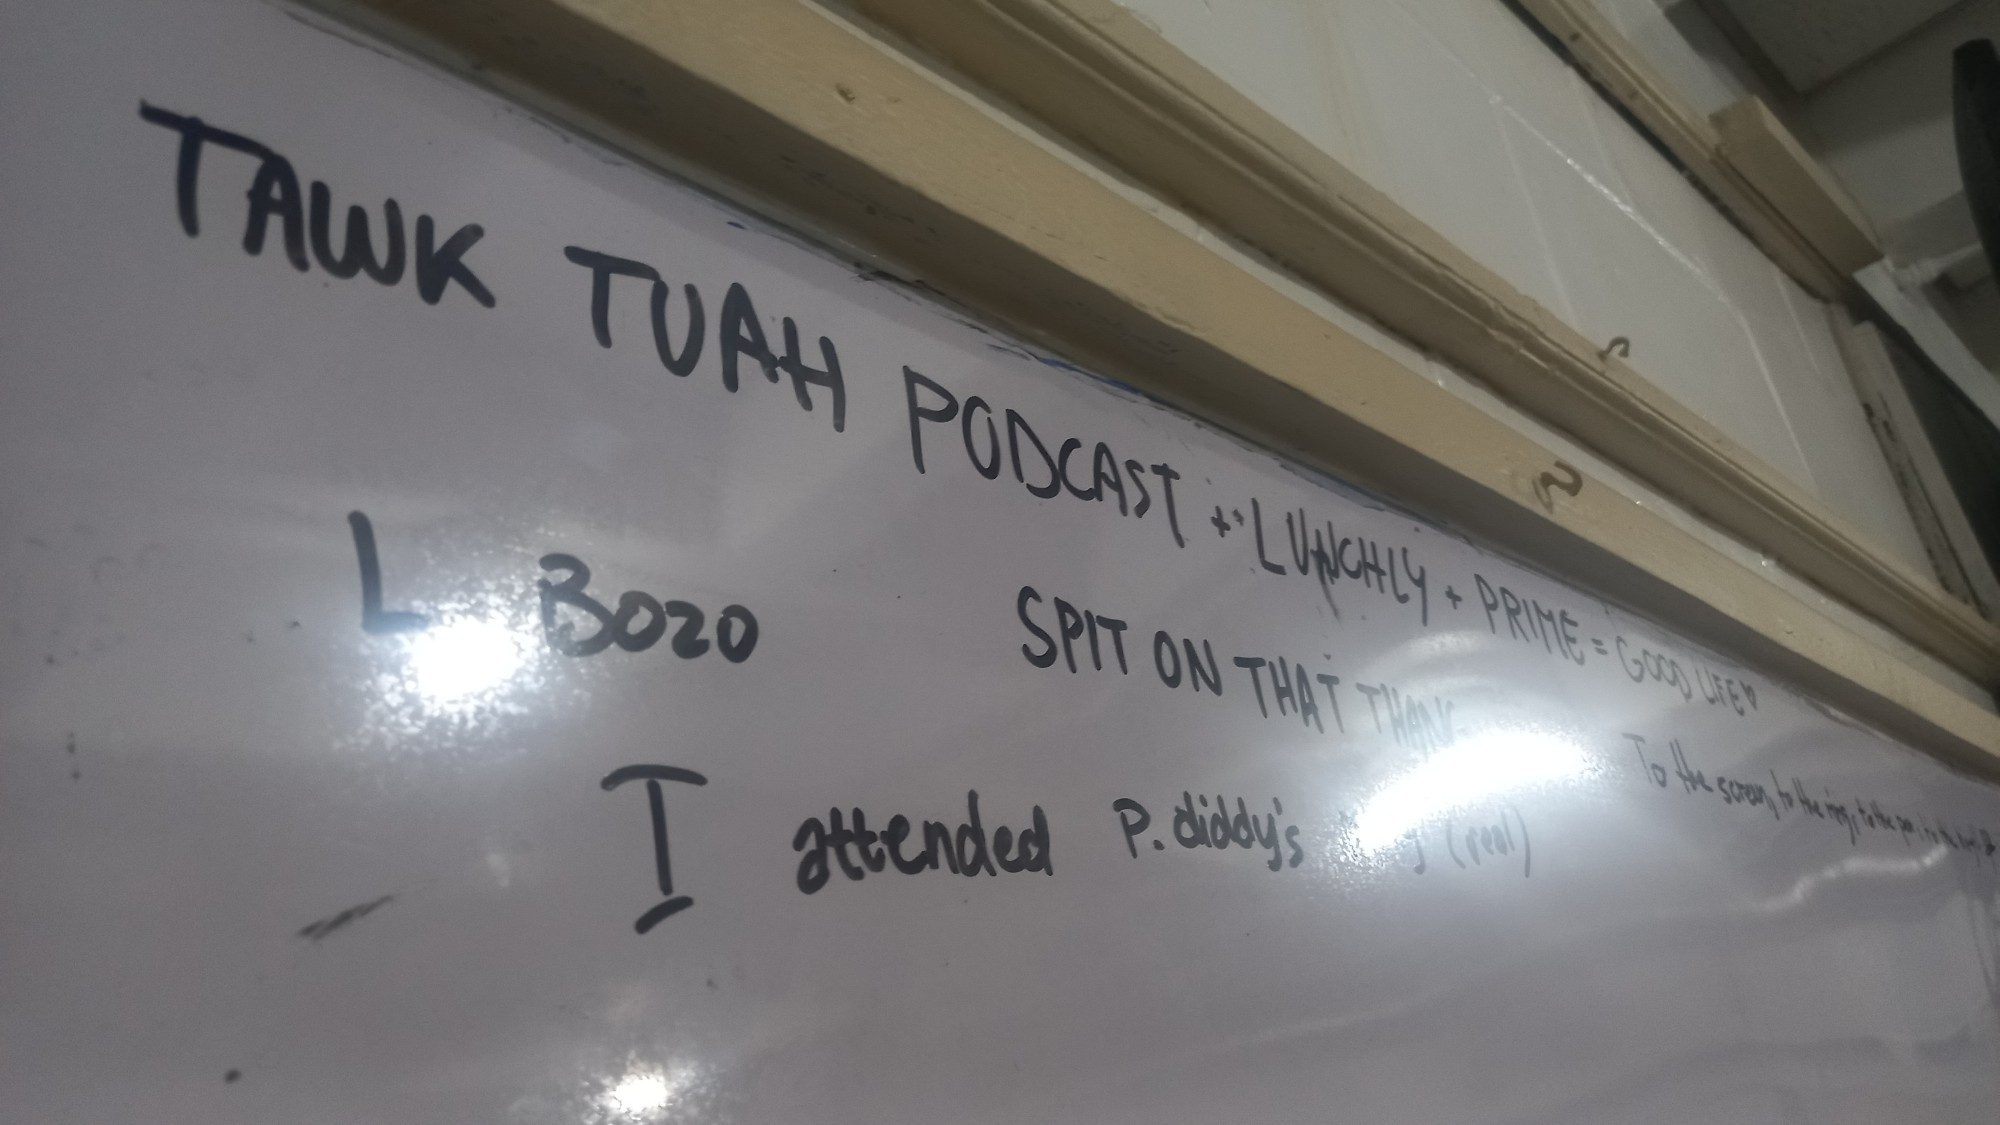 TAWK TUAH PODCAST + LUNCHLY + PRIME = GOOD LIFE♡
L BOZO
SPIT ON THAT THANG
I attended P. diddy's (real)
To the screen, to the ring, to the pen, to the